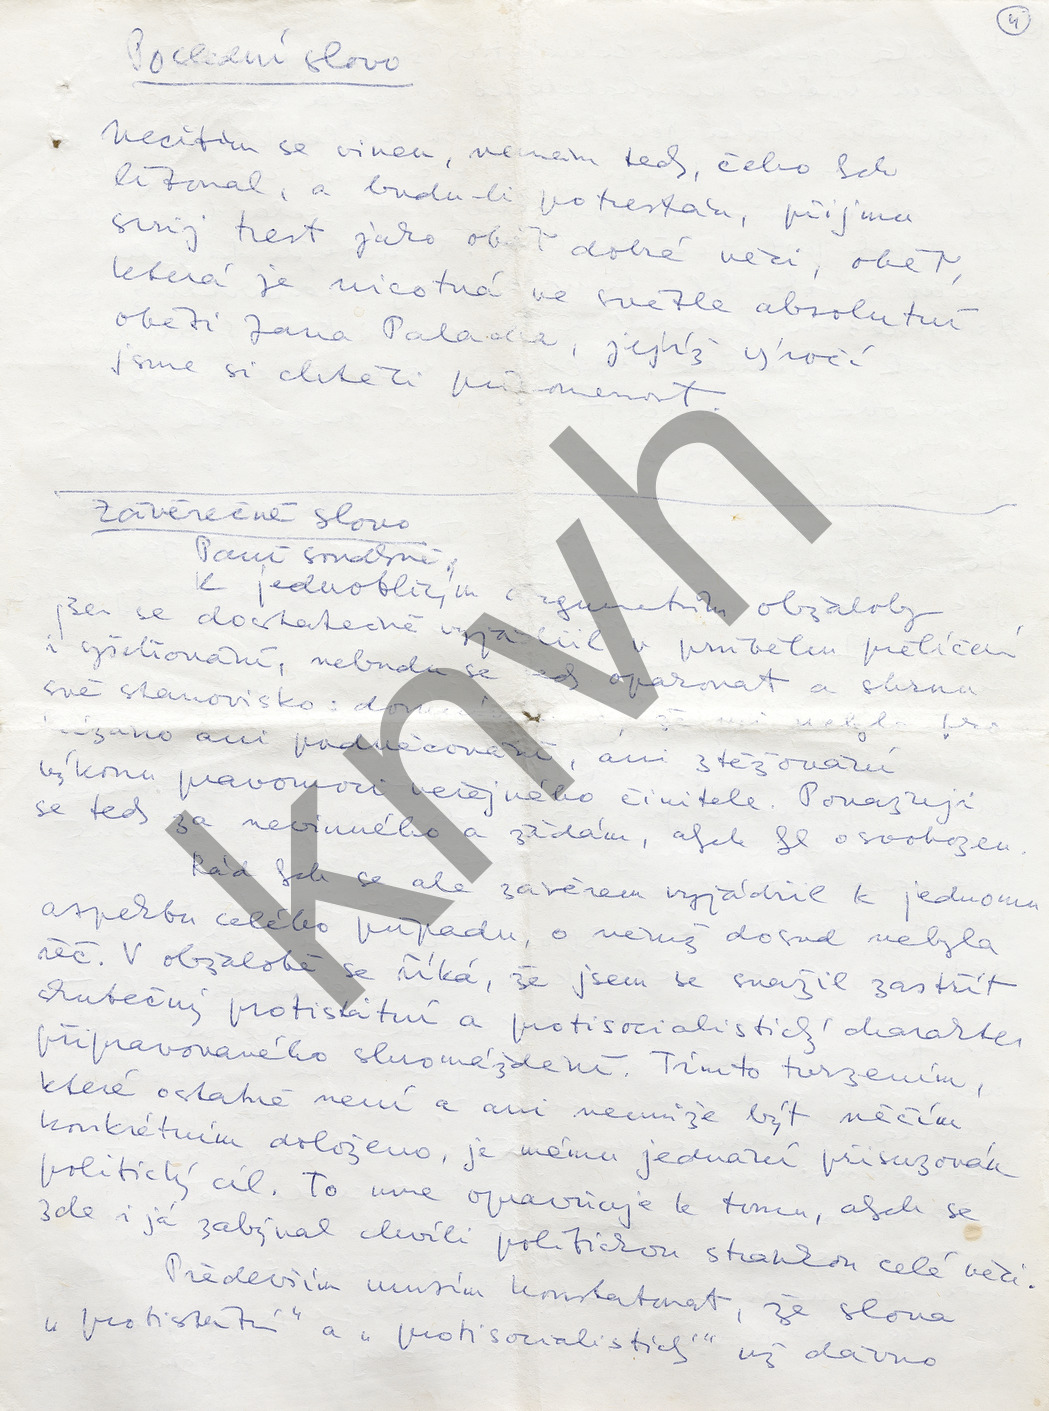 4
Poslední slovo
Necítím se vinen, nemám tedy, čeho bych
litoval, a budu-li potrestán, přijmu
svůj trest jako oběť dobré věci, oběť,
která je nicotná ve světle absolutní
oběti Jana Palacha, jejíž výročí
jsme si chtěli připomenout.
Závěrečné slovo
Paní soudkyně,
k jednotlivým argumentům obžaloby
jsem se dostatečně vyjádřil v průběhu přelíčení
i vyšetřování, nebudu se tedy opakovat a shrnu
své stanovisko: že mi nebylo pro
kázáno ani podněcování, ani ztěžování
výkonu pravomoci veřejného činitele. Považuji
se tedy za nevinného a žádám, abych byl osvobozen.
Rád bych se ale závěrem vyjádřil k jednomu
aspektu celého případu, o němž dosud nebyla
řeč. V obžalobě se říká, že jsem se snažil zastřít
skutečný protistátní a protisocialistický charakter
připravovaného shromáždění. Tímto tvrzením,
které ostatně není a ani nemůže být něčím
konkrétním doloženo, je mému jednání přisuzován
politický cíl. To mne opravňuje k tomu, abych se
zde i já zabýval chvíli politickou stránkou celé věci.
Především musím konstatovat, že slova
„protistátní“ a „protisocialistický“ už dávno
knvh